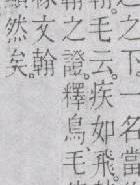 之下一名當
毛云。疾如飛。
之證。釋鳥。毛
文翰
然矣。